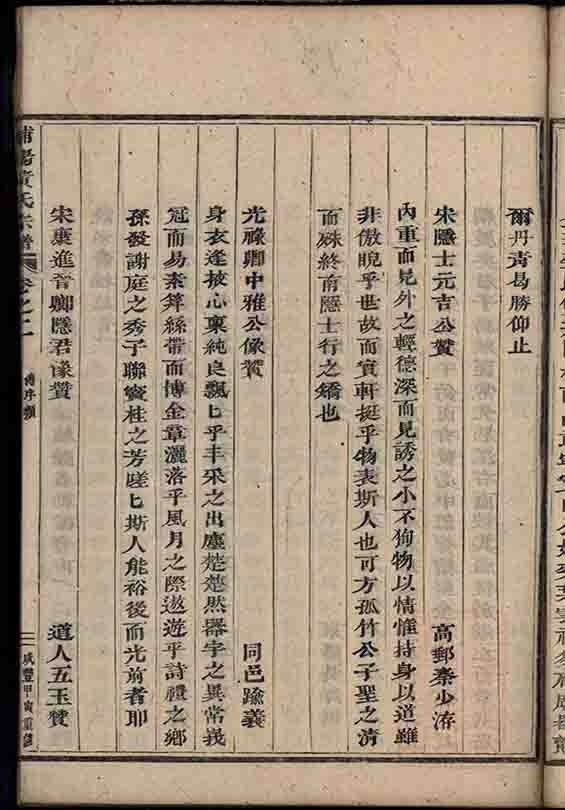 爾丹青曷勝仰止
宋隱士元吉公贊 高郵秦少游
內重而見外之輕德深而見誘之小不狥物以情惟持身以道雖
非傲睨乎世故而實軒挺乎物表斯人也可方孤竹公子聖之清
而殊終南隱士行之矯也
光祿卿中雅公像贊 同邑踰義
身衣逢掖心稟純良飄匕乎丰采之出塵楚楚然器宇之異常峩
冠而易素筭絲帶而博金章灑落乎風月之際遨遊乎詩禮之鄉
孫發謝庭之秀子聯竇桂之芳嗟匕斯人能裕後而光前者耶
宋廣進音卿隱君像贊 道人五玉贊
浦陽黃氏宗譜 卷之二 傳序類 咸豐甲寅重修